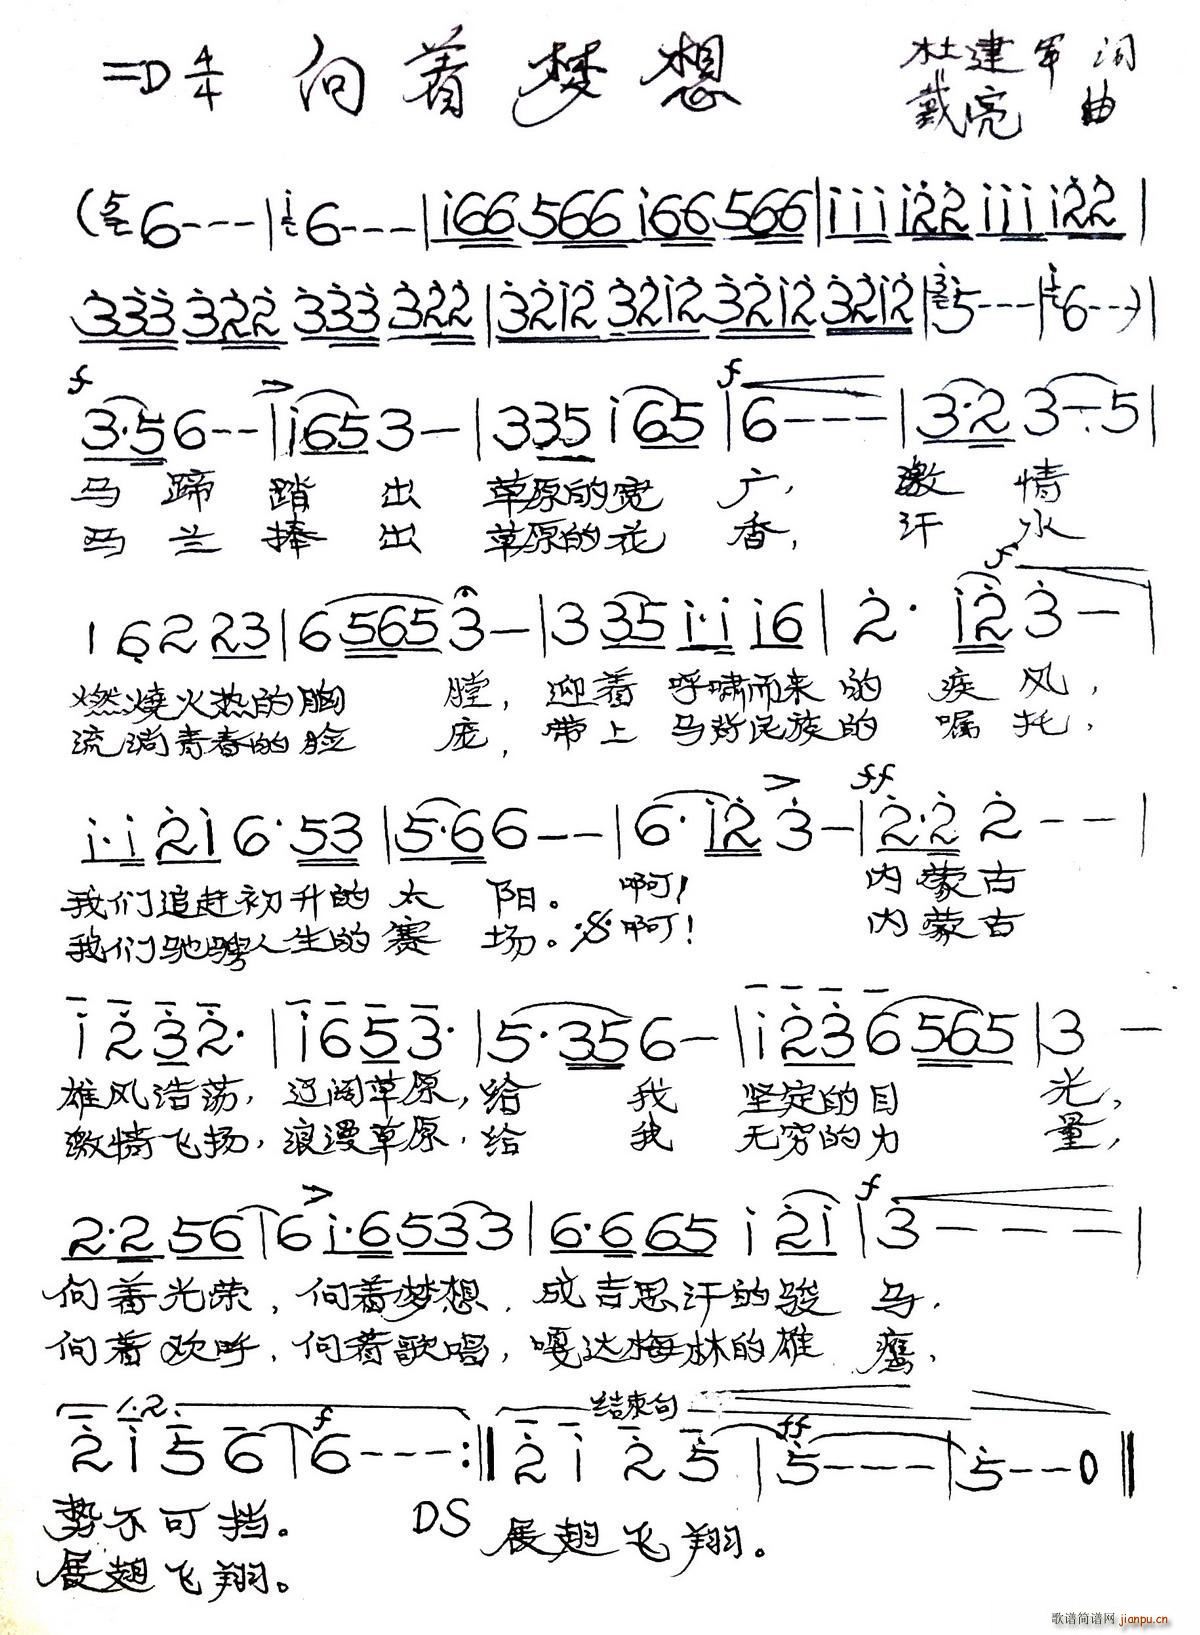 =D 4/4 向着梦想 杜建军 词
戴亮 曲
(6---|6---|i66 566 i66 566|iii i22 iii i22|
333 322 333 322|3212 3212 3212 3212|5---|6--)|
f > f
3·56--|i653-|335 i65|6---|3·2 3-·5|
马蹄踏出草原的宽广,激情
马兰捧出草原的花香,汗水
f
1 6 2 23|6 565 3-|3 35 i·i i6|2· i2 3-|
燃烧火热的胸膛,迎着呼啸而来的疾风,
流淌青春的脸庞,带上马背民族的嘱托,
> ff
i·i 2i 6·53|5·66--|6·i2 3-|2·2 2--|
我们追赶初升的太阳。啊!内蒙古
我们驰骋人生的赛场。啊!内蒙古
i 2 3 2·|i 6 5 3·|5·35 6-|i 2 3 6 565|3-
雄风浩荡,辽阔草原,给我坚定的目光,
激情飞扬,浪漫草原,给我无穷的力量,
> f
2·2 56|6 i·6 533|6·6 65 i 2i|3---|
向着光荣,向着梦想,成吉思汗的骏马,
向着欢呼,向着歌唱,嘎达梅林的雄鹰,
1.2 f 结束句 ff
2 i 5 6|6---:‖2 i 2 5|5----|5---0‖
势不可挡。 DS 展翅飞翔。
展翅飞翔。
歌谱简谱网 jianpu.cn